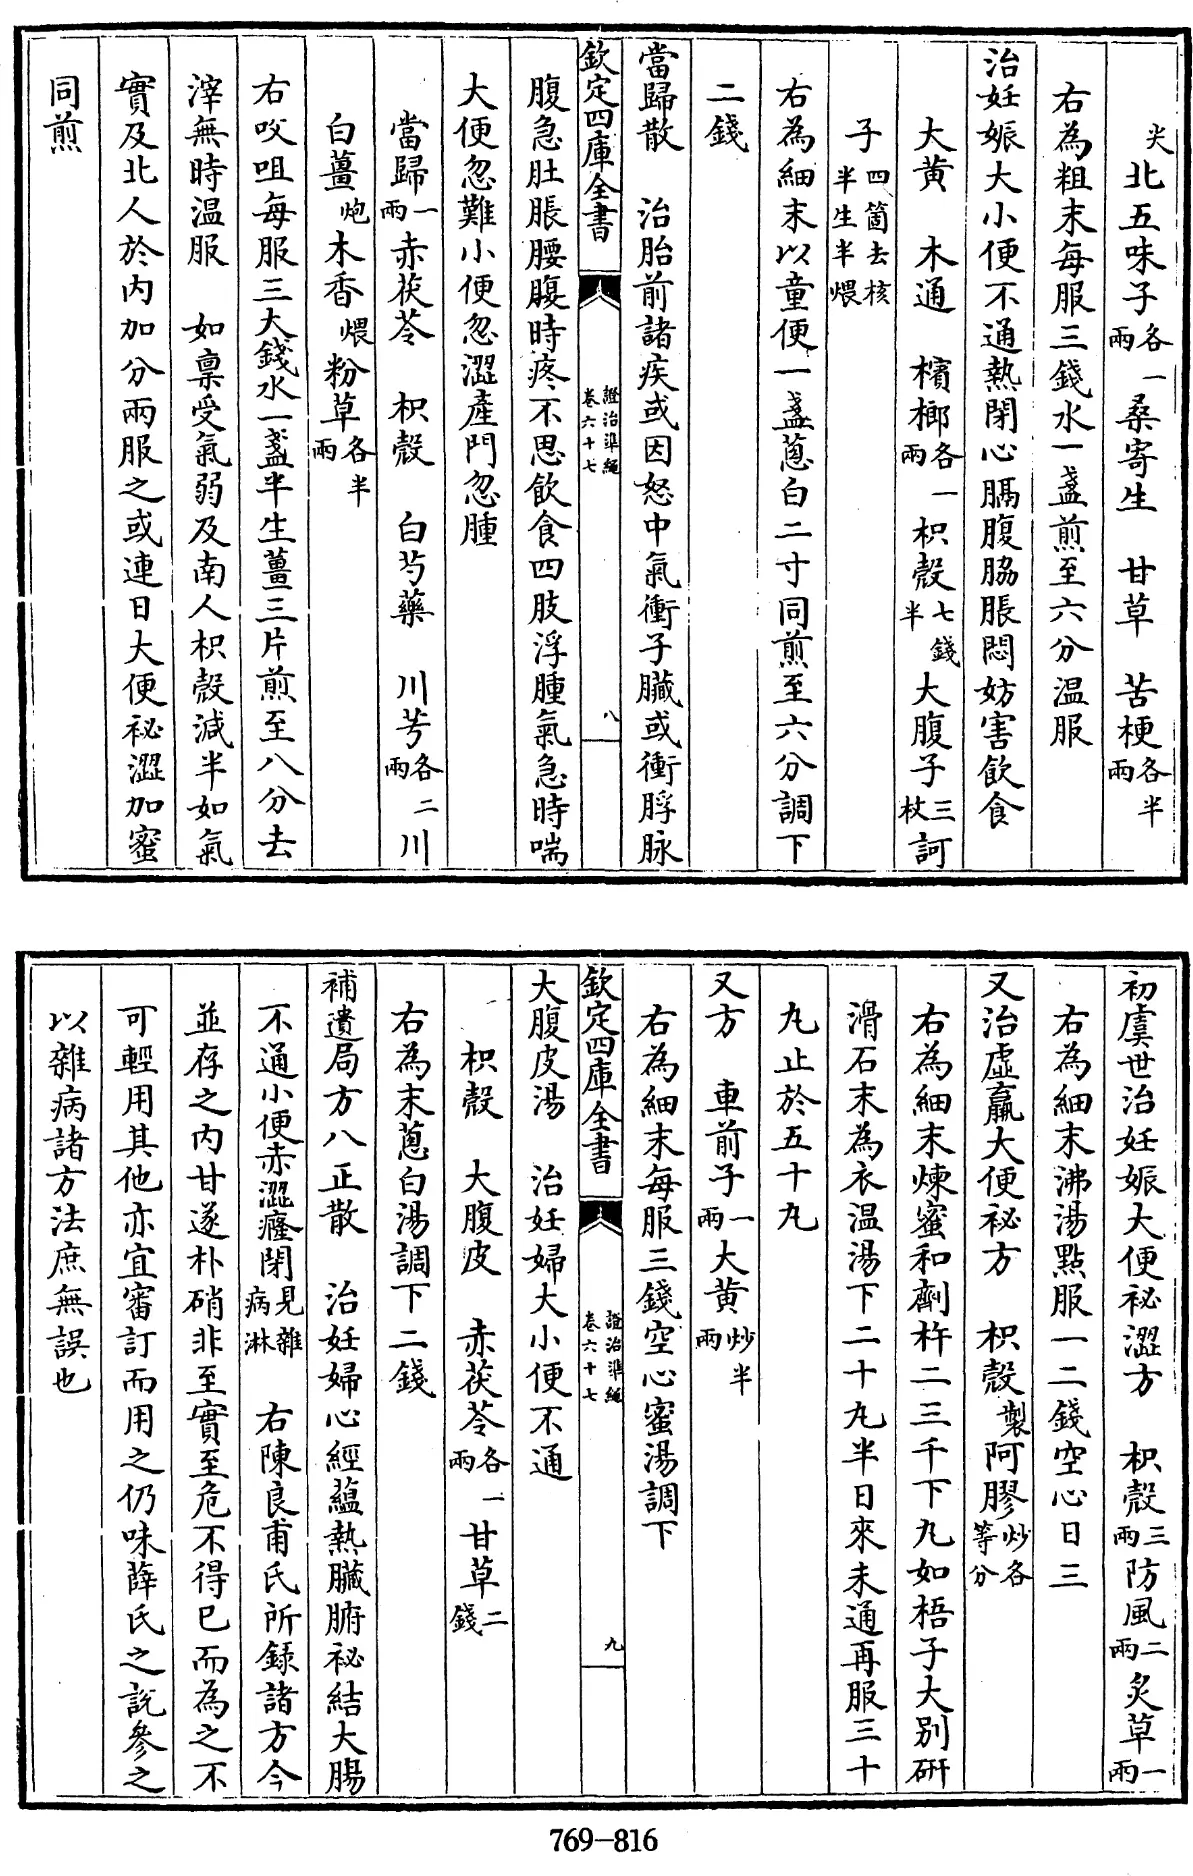 尖北五味子各一兩桑寄生　甘草　苦梗各半兩
右為粗末每服三錢水一盞煎至六分温服
治妊娠大小便不通熱閉心膈腹脇脹悶妨害飲食
大黄　木通　檳榔各一兩枳殼七錢半大腹子三枚訶
子四箇去核半生半煨
右為細末以童便一盞蔥白二寸同煎至六分調下
二錢
當歸散　治胎前諸疾或因怒中氣衝子臟或衝脬脉
欽定四庫全書
證治準繩
卷六十七
八
腹急肚脹腰腹時疼不思飲食四肢浮腫氣急時喘
大便忽難小便忽澀產門忽腫
當歸一兩赤茯苓　枳殼　白芍藥　川芎各二兩川
白薑炮木香煨粉草各半兩
右㕮咀每服三大錢水一盞半生薑三片煎至八分去
滓無時温服　如禀受氣弱及南人枳殼減半如氣
實及北人於内加分兩服之或連日大便秘澀加蜜
同煎
初虞世治妊娠大便祕澀方　枳殼三兩防風二兩炙草一兩
右為細末沸湯點服一二錢空心日三
又治虛羸大便祕方　枳殼製阿膠炒各等分
右為細末煉蜜和劑杵二三千下丸如梧子大别研
滑石末為衣温湯下二十丸半日來未通再服三十
丸止於五十丸
又方　車前子一兩大黄炒半兩
右為細末每服三錢空心蜜湯調下
欽定四庫全書
證治準繩
卷六十七
九
大腹皮湯　治妊婦大小便不通
枳殼　大腹皮　赤茯苓各一兩甘草二錢
右為末蔥白湯調下二錢
補遺局方八正散　治妊婦心經蘊熱臟腑祕結大腸
不通小便赤澀癃閉見雜病淋　右陳良甫氏所録諸方今
並存之内甘遂朴硝非至實至危不得已而為之不
可輕用其他亦宜審訂而用之仍味薛氏之説參之
以雜病諸方法庶無誤也
769-816